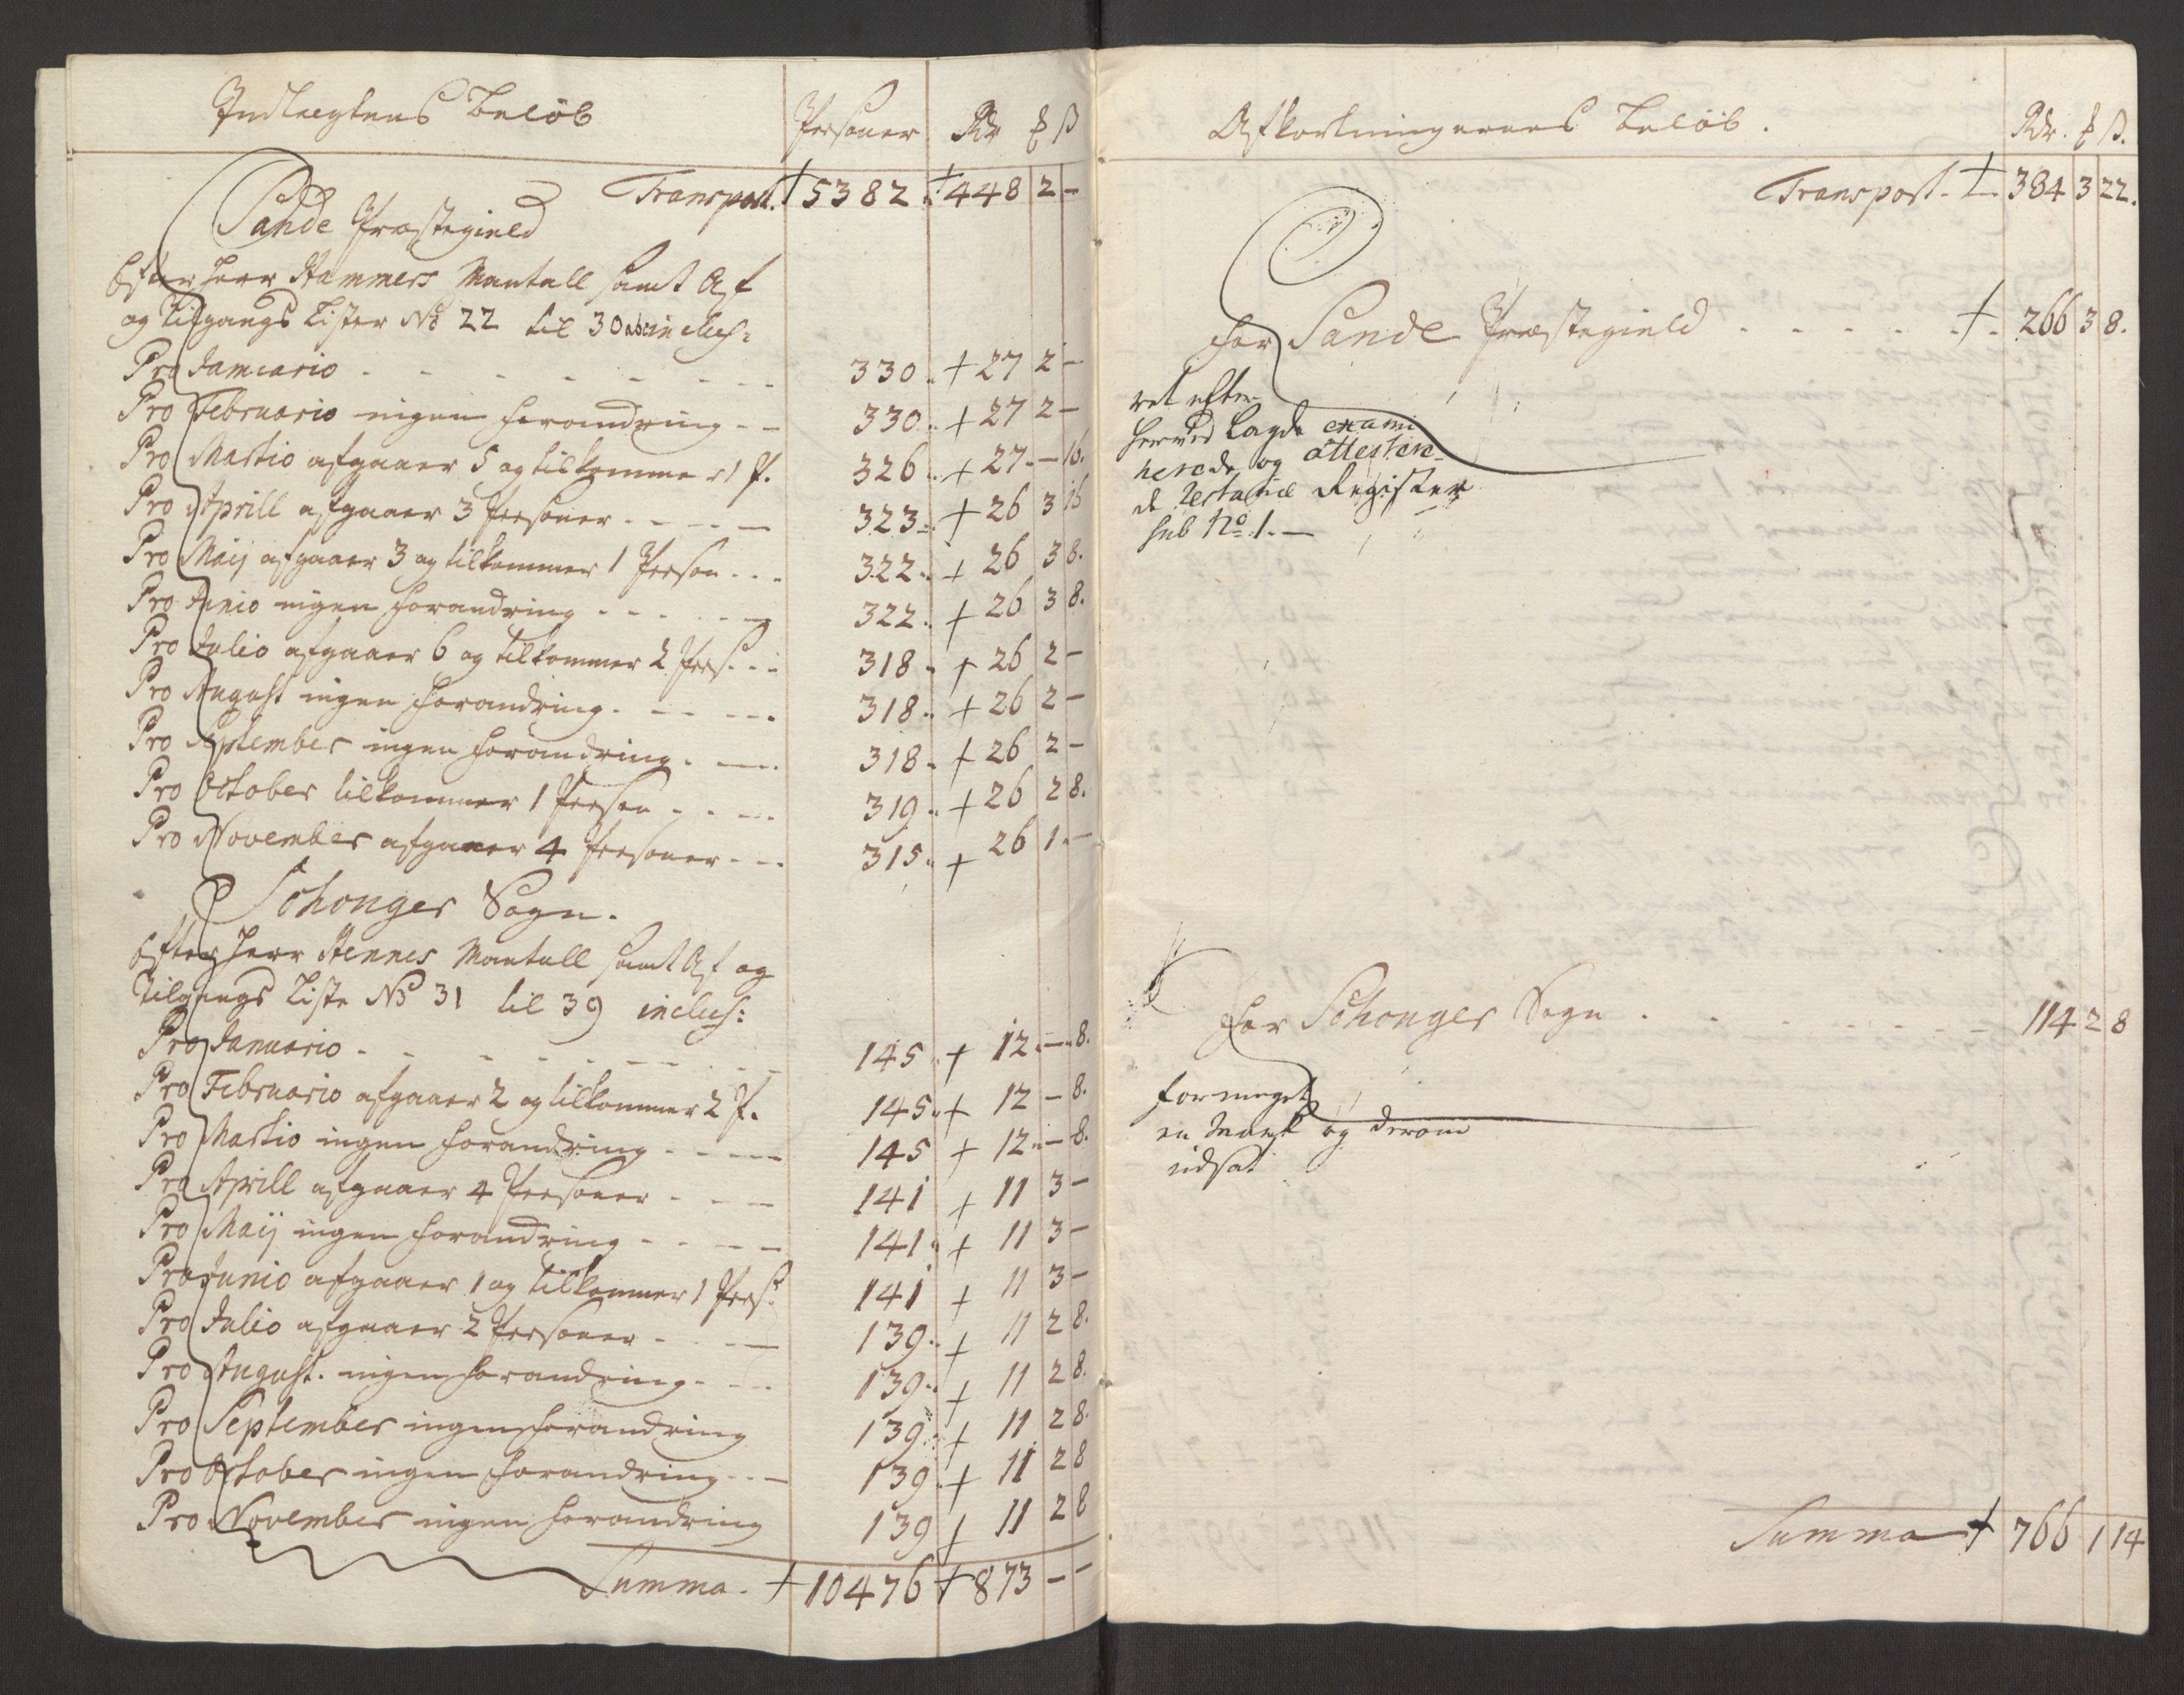 Indtægtens Beløb Personer Rdr ƒ β
Transport. + 5382. + 448 2 -
Sande Præstegield
Efter Herr Hammers Mantall samt Af
og tilgangs Lister No 22 til 30 inclus:
Pro Januario - - - 330. + 27 2 -
Pro Februario ingen forandring - - 330. + 27 2 -
Pro Martio afgaaer 5 og tilkommer 1 P. 326. + 27 - 16.
Pro Aprill afgaaer 3 Personer - - - 323. + 26 3 16
Pro Maij afgaaer 3 og tilkommer 1 Person - - 322. + 26 3 8.
Pro Junio ingen forandring - - - 322. + 26 3 8.
Pro Julio afgaaer 6 og tilkommer 2 Pers. - - 318. + 26 2 -
Pro August ingen forandring - - - 318. + 26 2 -
Pro September ingen forandring - - 318. + 26 2 -
Pro October tilkommer 1 Person - - - 319. + 26 2 8.
Pro November afgaaer 4 Personer - - 315. + 26 1 -
Schouger Sogn.
Efter Herr Stennes Mantall samt Af og
tilgangs Liste No 31 til 39 inclus:
Pro Januario - - - 145. + 12 - 8.
Pro Februario afgaaer 2 og tilkommer 2 P. 145. + 12 - 8.
Pro Martio ingen forandring - - - 145 + 12 - 8.
Pro Aprill afgaaer 4 Personer - - - 141 + 11 3 -
Pro Maij ingen forandring - - - 141. + 11 3 -
Pro Junio afgaaer 1 og tilkommer 1 Pers: 141 + 11 3 -
Pro Julio afgaaer 2 Personer - - - 139. + 11 2 8.
Pro August. ingen forandring - - - 139. + 11 2 8.
Pro September ingen forandring 139. + 11 2 8.
Pro October ingen forandring - - - 139. + 11 2 8
Pro November ingen forandring 139 + 11 2 8
Summa. + 10476 + 873 - -
Afkortningernes Beløb. Rdr. ƒ β.
Transport - + 384 3 22.
For Sande Præstegield - - - + 266 3 8.
ret efter
herved lagde exami
nerede og attestere
de Restance Register
sub No 1. -
For Schouger Sogn - - - 114 2 8
for meget
en Mark og derom
udsat
Summa + 766 1 14